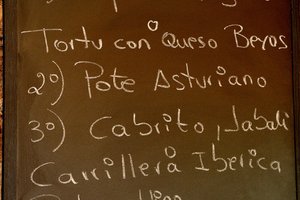 Torty con Queso Beyos
2º) Pote Asturiano
3º) Cabrito, Jabali
Carrillera Iberica